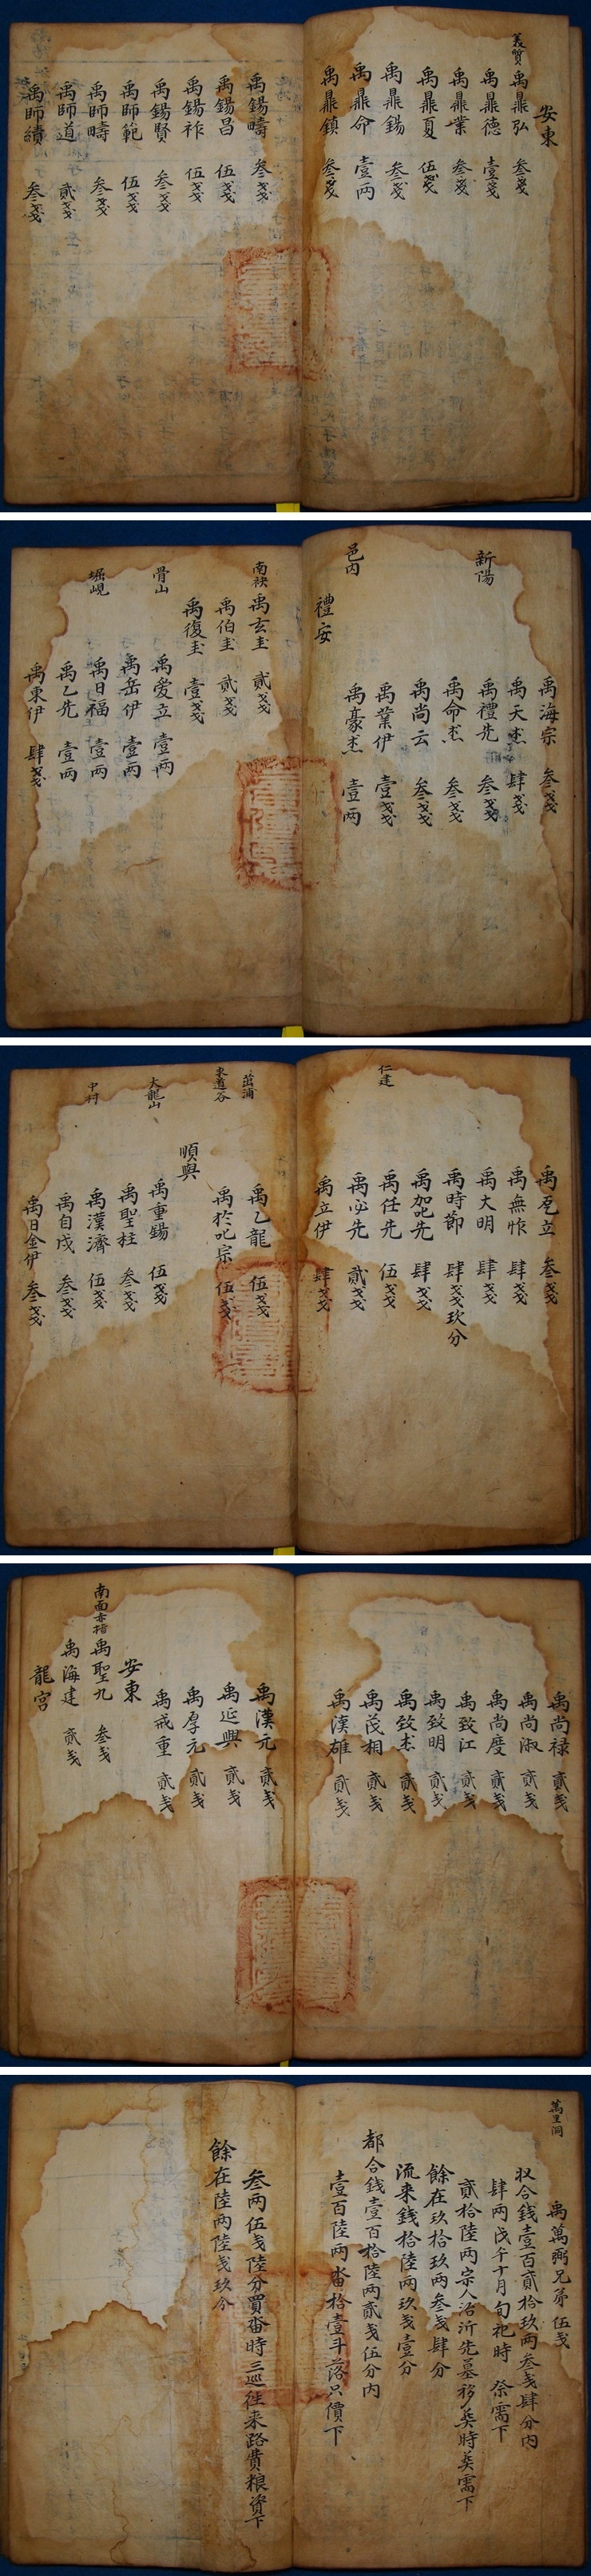 安東
義質 禹鼎弘 叁戔
禹鼎德 壹戔
禹鼎業 叁戔
禹鼎夏 伍戔
禹鼎錫 叁戔
禹鼎命 壹兩
禹鼎鎮 叁戔
禹錫疇 叁戔
禹錫昌 伍戔
禹錫祚 伍戔
禹錫賢 叁戔
禹師範 伍戔
禹師疇 叁戔
禹師道 貳戔
禹師績 叁戔
禹海宗 叁戔
禹天杰 肆戔
新陽 禹禮先 叁戔
禹命杰 叁戔
禹尚云 叁戔
禹業伊 壹戔
邑内 禹豪杰 壹兩
禮安
南袂 禹玄圭 貳戔
禹伯圭 貳戔
禹復圭 壹戔
骨山 禹爱立 壹兩
禹岳伊 壹兩
堀峴 禹日福 壹兩
禹乙先 壹兩
禹東伊 肆戔
禹乭立 叁戔
禹無怍 肆戔
禹大明 肆戔
禹時節 肆戔玖分
禹加叱先 肆戔
仁建 禹任先 伍戔
禹必先 貳戔
禹立伊 肆戔
茁浦 禹乙龍 伍戔
東道谷 禹於叱宗 伍戔
順興
大龍山 禹重錫 伍戔
禹聖柱 叁戔
中村 禹漢濟 伍戔
禹自戌 叁戔
禹日金伊 叁戔
禹尚禄 貳戔
禹尚淑 貳戔
禹尚度 貳戔
禹致江 貳戔
禹致明 貳戔
禹致杰 貳戔
禹茂相 貳戔
禹漢雄 貳戔
禹漢元 貳戔
禹延興 貳戔
禹厚元 貳戔
禹戒重 貳戔
安東
南面 禹聖九 叁戔
禹海建 貳戔
龍宮
萬里洞 禹萬弼兄弟 伍戔
収合錢壹百貳拾玖兩叁戔肆分内
肆兩戊午十月旬祀時 祭需下
貳拾陸兩宗人洽沂先墓移葬時葬需下
餘在玖拾玖兩叁戔肆分
流来錢拾陸兩玖戔壹分
都合錢壹百拾陸兩貳戔伍分内
壹百陸兩畓拾壹斗落只價下
叁兩伍戔陸分買畓時三巡往来路費粮資下
餘在陸兩陸戔玖分